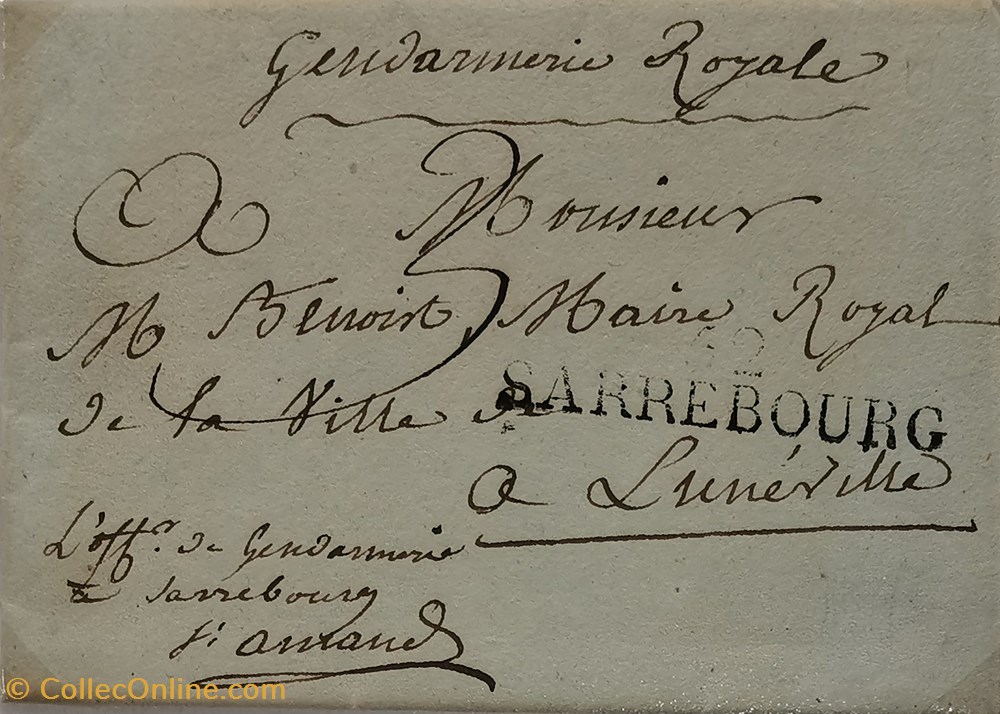 Gendarmerie Royale
A Monsieur
M Benoist, Maire Royal
de la Ville de
52
SARREBOURG
a Lunéville
L'offr. de Gendarmerie
a Sarrebourg
St amand
© CollecOnline.com